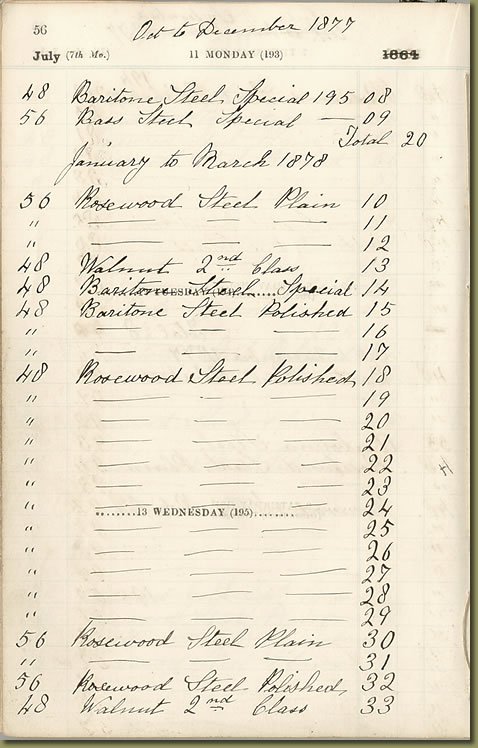 56 Oct to December 1877
July (7th Mo.) 11 MONDAY (193) 1864
48 Baritone Steel Special 195 08
56 Bass Steel Special — 09
Total 20
January to March 1878
56 Rosewood Steel Plain 10
" — — — 11
" — — — 12
48 Walnut 2nd Class 13
48 Baritone Steel Special 14
48 Baritone Steel Polished 15
" — — — 16
" — — — 17
48 Rosewood Steel Polished 18
" — — — 19
" — — — 20
" — — — 21
" — — — 22
" — — — 23
" — — — 24
13 WEDNESDAY (195)
" — — — 25
" — — — 26
" — — — 27
" — — — 28
" — — — 29
56 Rosewood Steel Plain 30
" — — — 31
56 Rosewood Steel Polished 32
48 Walnut 2nd Class 33